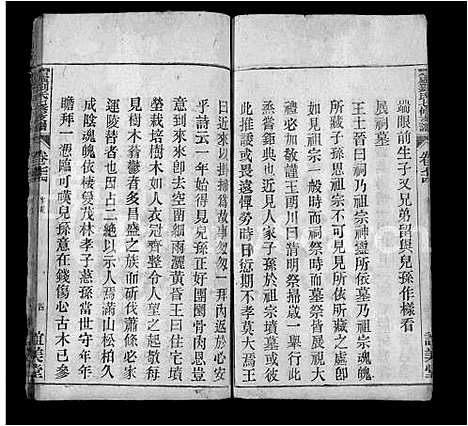 端眼前生子又兄弟留與兒孫作樣看
展祠墓
王士晉曰祠乃祖宗神靈所依墓乃祖宗魂魄
所藏子孫思祖宗不可見見所依所藏之處即
如見祖宗一般時而祠祭時而墓祭皆展視大
禮必加敬謹王朗川曰清明祭掃歲一舉行
煮嘗鉅典近見人家子孫於祖宗墳墓或從
此推諉或彼此延挨甚至短期不到不孝莫大王
曰近來以祭掃為故事匆匆一拜內返於心安
乎詩云一年始得見兒孫正好團圞骨肉恩豈
意到來來即去空留細雨灑黃昏王曰住宅墳
塋栽培樹木如人衣冠齊整令人望而起敬故
見樹木森鬱者多昌盛之族而斫伐蕭條必家
運陵替者也因占二絕以示人爲滿山松柏久
成陰魂魄依棲愛茂林孝子慈孫當世守年年
瞻拜一憑臨可嘆兒孫意在錢傷心古木已參
卷七
誼美堂
卷七
四
誼美堂